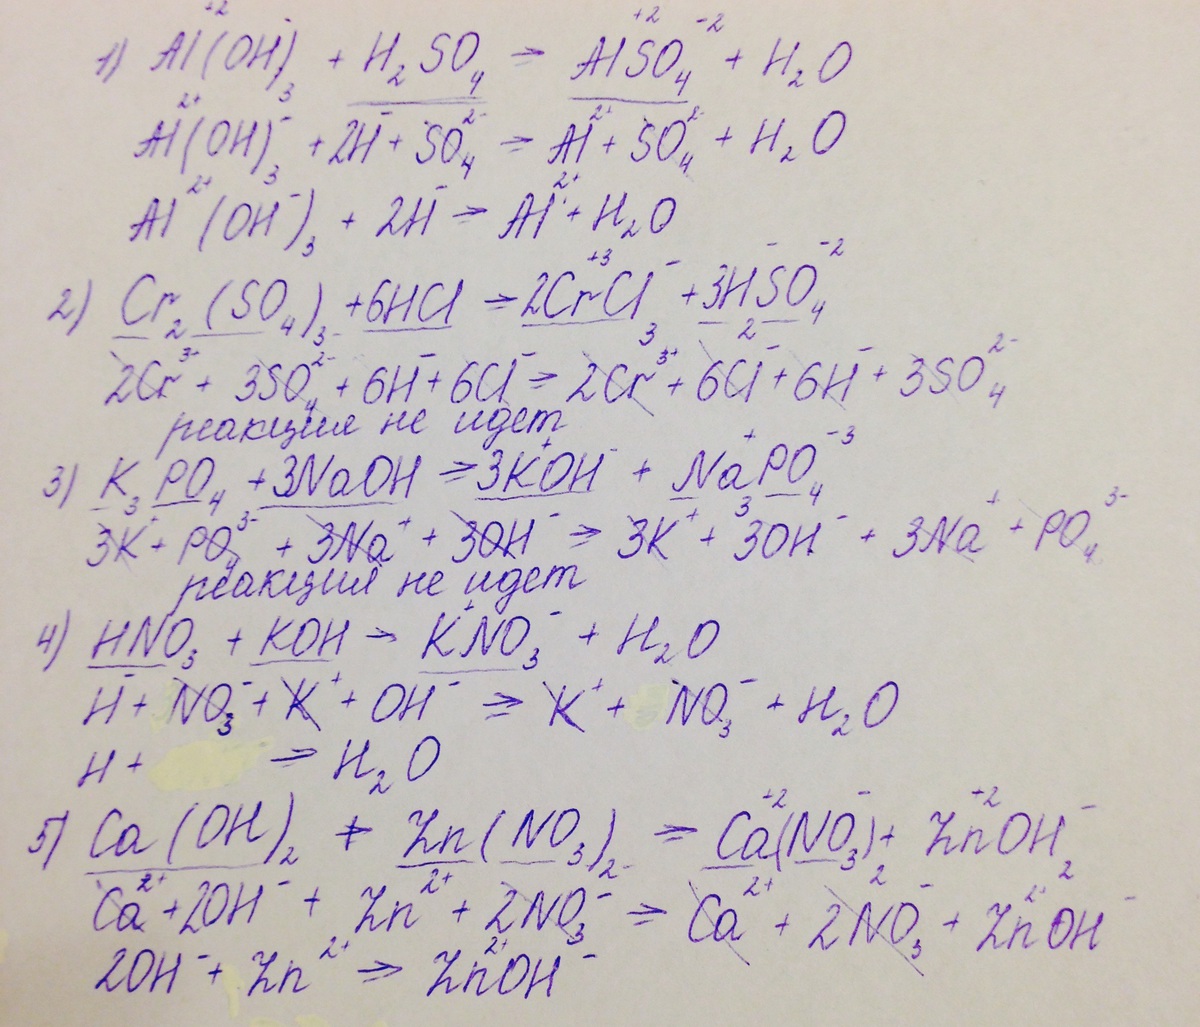 1) Al⁺²(OH)⁻₃ + H₂SO₄ => Al⁺²SO₄⁻² + H₂O
Al²⁺(OH)⁻₃ + 2H⁻ + SO₄²⁻ => Al²⁺ + SO₄²⁻ + H₂O
Al²⁺(OH⁻)₃ + 2H⁻ => Al²⁺ + H₂O
2) Cr₂(SO₄)₃ + 6HCl => 2Cr⁺³Cl⁻₃ + 3H⁻₂SO₄⁻²
2Cr³⁻ + 3SO₄²⁻ + 6H⁻ + 6Cl⁻ => 2Cr³⁺ + 6Cl⁻ + 6H⁻ + 3SO₄²⁻
реакция не идет
3) K₃PO₄ + 3NaOH => 3K⁺OH⁻ + Na⁺₃PO₄⁻³
3K⁺ + PO₄³⁻ + 3Na⁺ + 3OH⁻ => 3K⁺ + 3OH⁻ + 3Na⁺ + PO₄³⁻
реакция не идет
4) HNO₃ + KOH → K⁺NO₃⁻ + H₂O
H⁻ + NO₃⁻ + K⁺ + OH⁻ => K⁺ + NO₃⁻ + H₂O
H + => H₂O
5) Ca(OH)₂ + Zn(NO₃)₂ => Ca⁺²(NO₃)⁻₂ + Zn⁺²OH₂⁻
Ca²⁺ + 2OH⁻ + Zn²⁺ + 2NO₃⁻ => Ca²⁺ + 2NO₃⁻ + Zn²⁺OH⁻
2OH⁻ + Zn²⁺ => Zn²⁺OH⁻